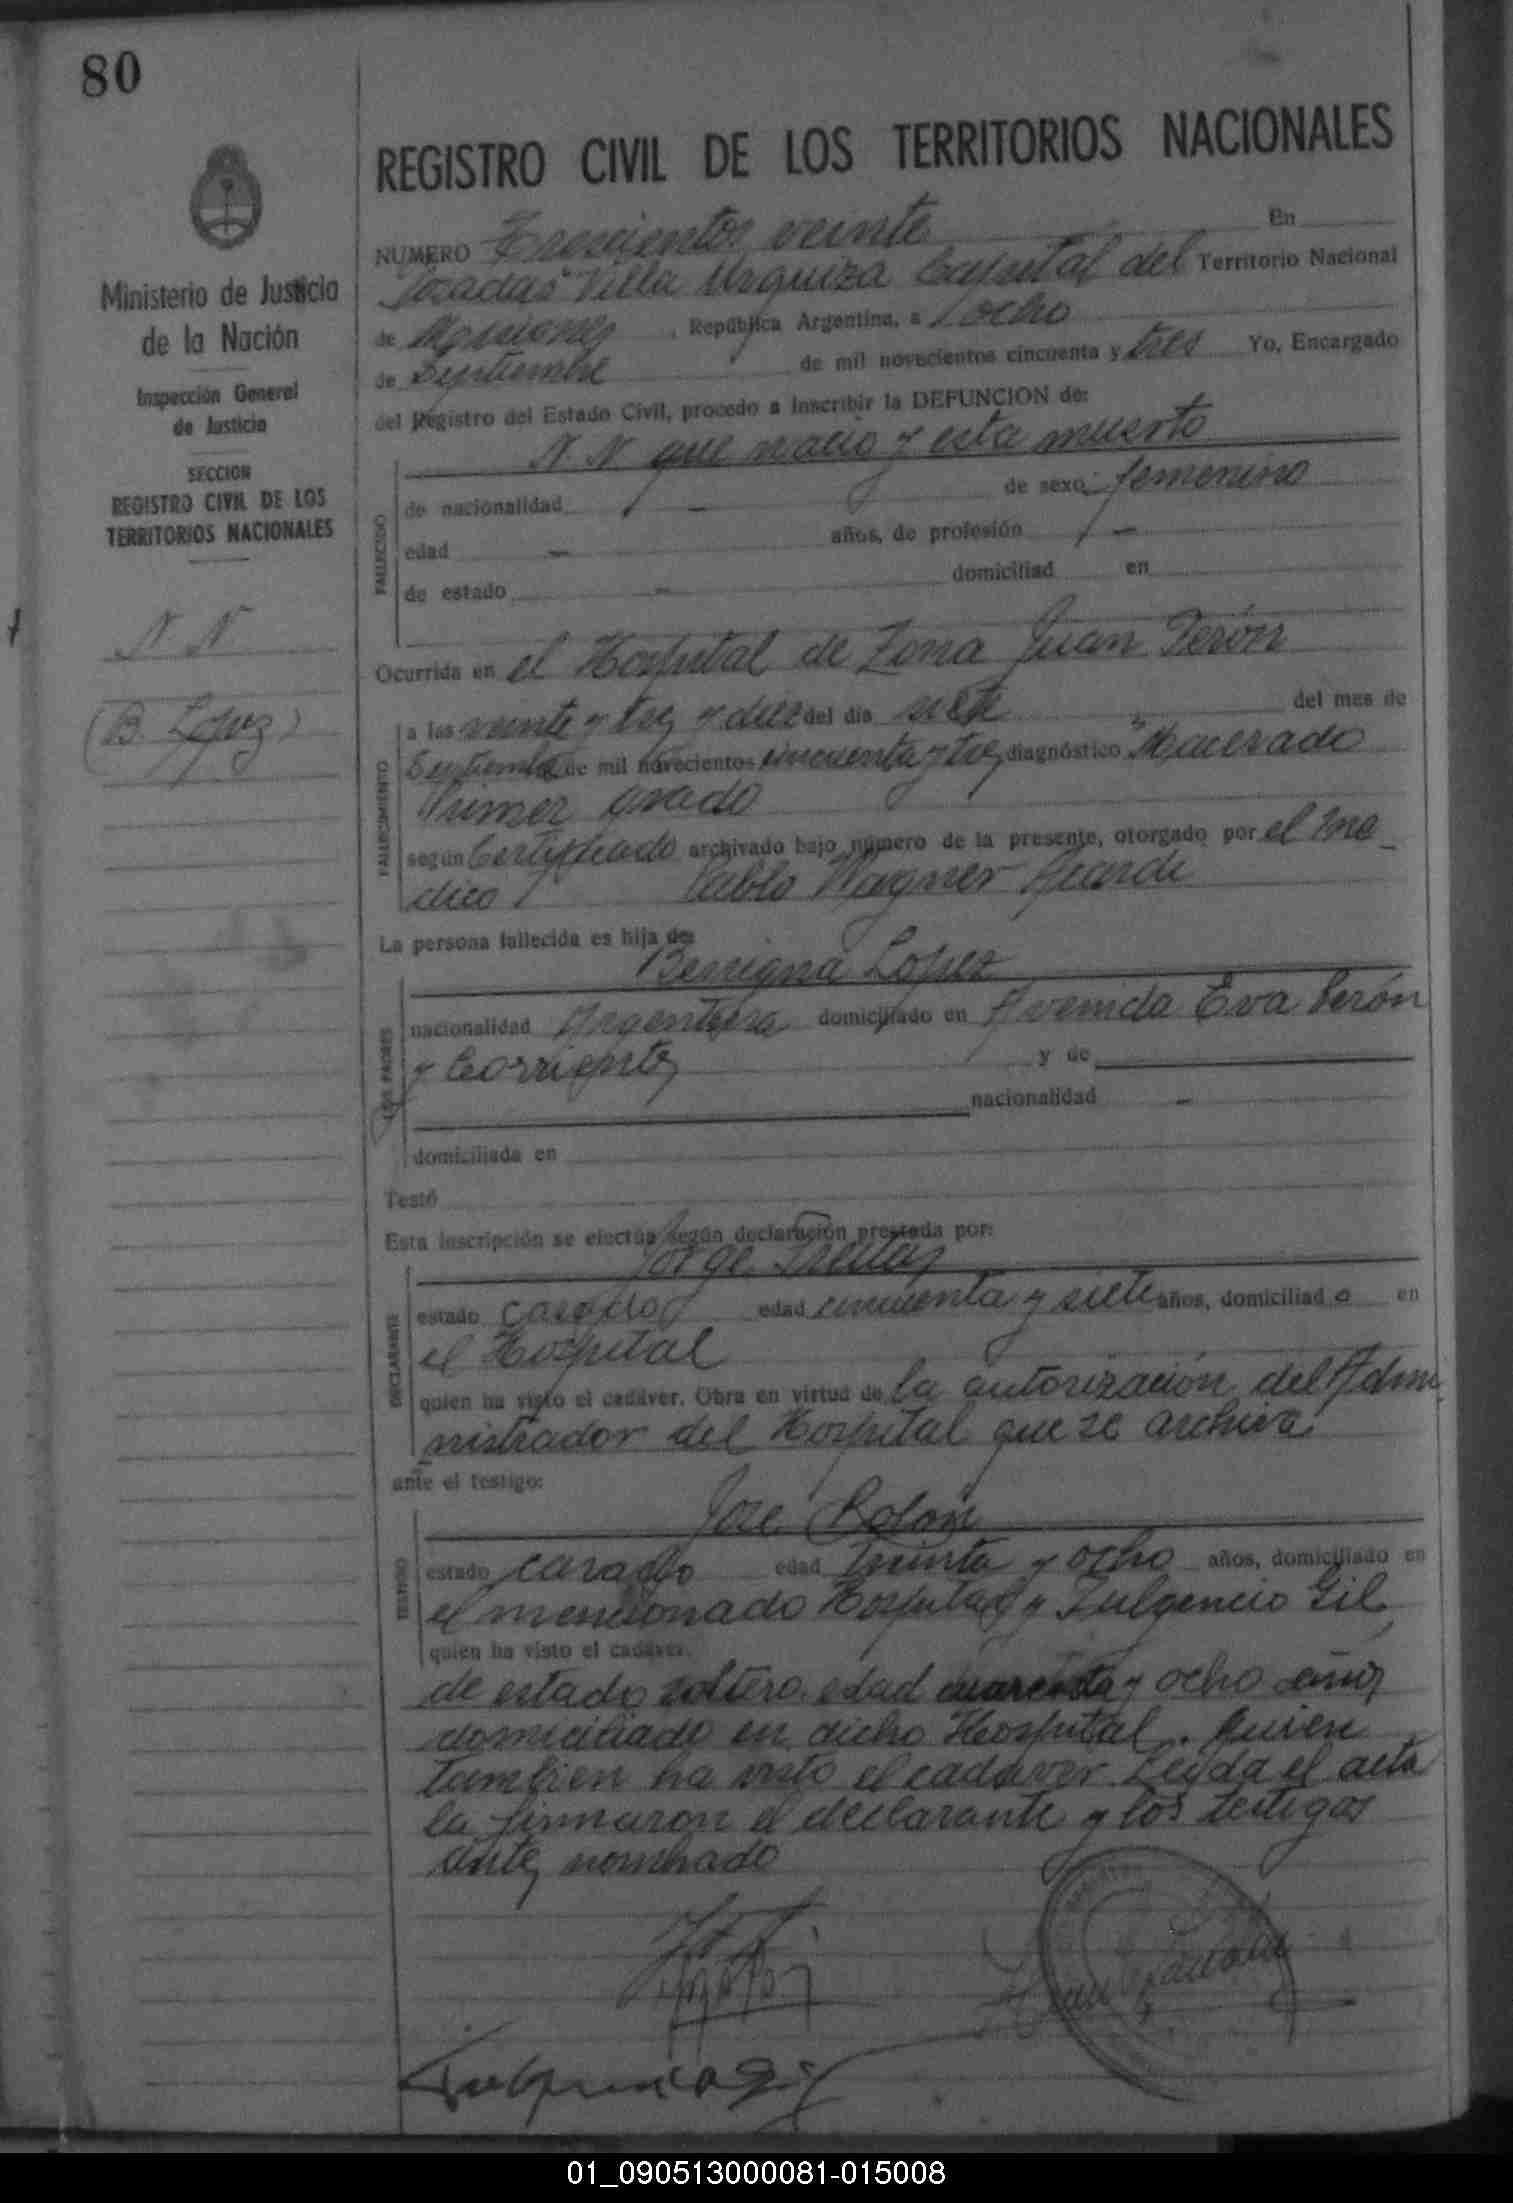 80
REGISTRO CIVIL DE LOS TERRITORIOS NACIONALES
Ministerio de Justicia
de la Nación
Inspección General
de Justicia
SECCION
REGISTRO CIVIL DE LOS
TERRITORIOS NACIONALES
N. N
(B. López)
NUMERO Trescientos veinte En
Posadas "Villa Urquiza Capital del Territorio Nacional
de Misiones, República Argentina, a ocho
de Septiembre de mil novecientos cincuenta y tres Yo, Encargado
del Registro del Estado Civil, procedo a inscribir la DEFUNCION de:
N. N que nacio y esta muerto
FALLECIDO
de nacionalidad - de sexo femenino
edad - años, de profesión -
de estado - domiciliad en
Ocurrida en el Hospital de Zona Juan Perón
FALLECIMIENTO
a las veinte y tres y diez del día siete del mes de
Septiembre de mil novecientos cincuenta y tres diagnóstico "Macerado
Primer grado
según Certificado archivado bajo número de la presente, otorgado por el me-
dico Pablo Wagner
La persona fallecida es hija de:
Benigna Lopez
LOS PADRES
nacionalidad Argentina domiciliado en Avenida Eva Perón
y Corrientes y de
nacionalidad -
domiciliada en
Testó
Esta inscripción se efectúa según declaración prestada por:
Jorge Freitas
DECLARANTE
estado casado edad cincuenta y siete años, domiciliado en
el Hospital
quien ha visto el cadáver. Obra en virtud de la autorización del Admi
nistrador del Hospital que se archiva
ante el testigo:
José Rolon
TESTIGO
estado casado edad treinta y ocho años, domiciliado en
el mencionado Hospital y Fulgencio Gil,
quien ha visto el cadáver.
de estado soltero edad cuarenta y ocho años
domiciliado en dicho Hospital. Quien
tambien ha visto el cadaver Leyda el acta
la firmaron el declarante y los testigos
antes nombrado
Fulgencio Gil
01_090513000081-015008